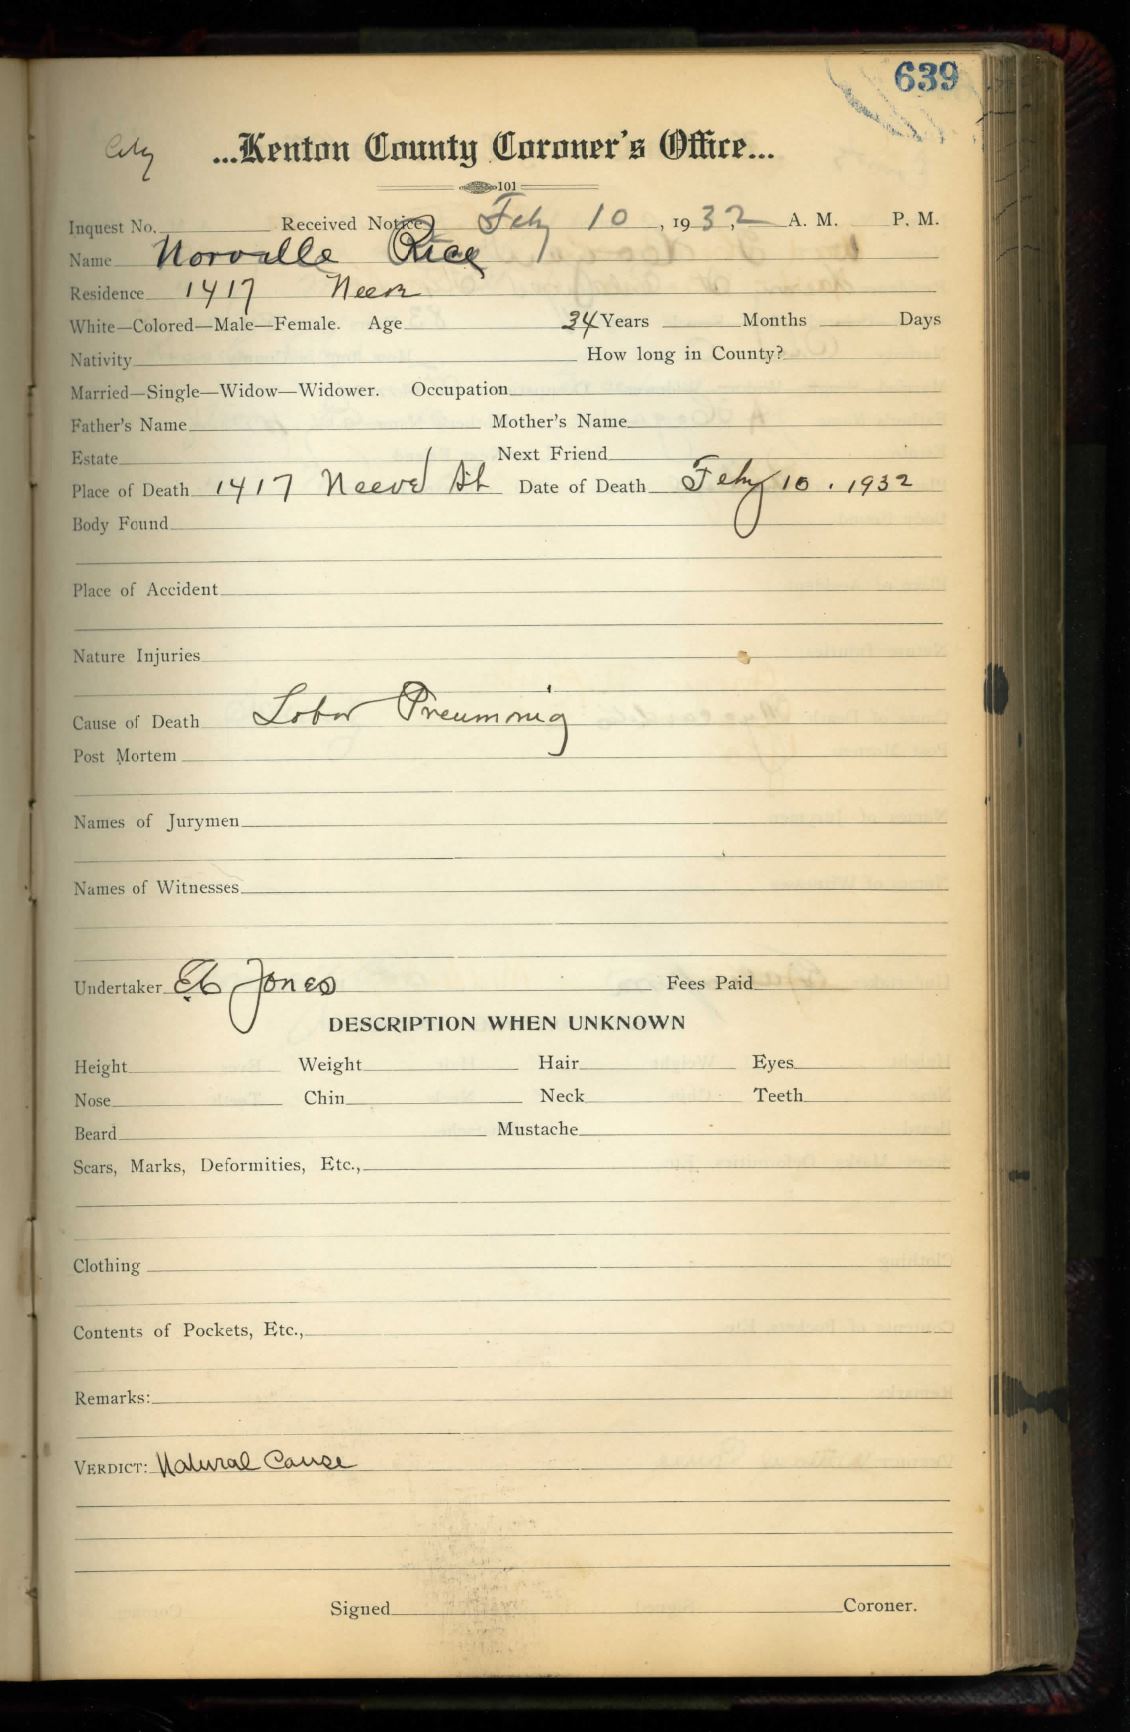 639
City
...Kenton County Coroner's Office...
101
Inquest No. Received Notice Feby 10, 1932 A. M. P. M.
Name Norvalle Rice
Residence 1417 Neeve
White—Colored—Male—Female. Age 34 Years Months Days
Nativity How long in County?
Married—Single—Widow—Widower. Occupation
Father's Name Mother's Name
Estate Next Friend
Place of Death 1417 Neeve St Date of Death Feby 10. 1932
Body Found
Place of Accident
Nature Injuries
Cause of Death Lobar Pneumonia
Post Mortem
Names of Jurymen
Names of Witnesses
Undertaker Jones Fees Paid
DESCRIPTION WHEN UNKNOWN
Height Weight Hair Eyes
Nose Chin Neck Teeth
Beard Mustache
Scars, Marks, Deformities, Etc.,
Clothing
Contents of Pockets, Etc.,
Remarks:
VERDICT: Natural Cause
Signed Coroner.